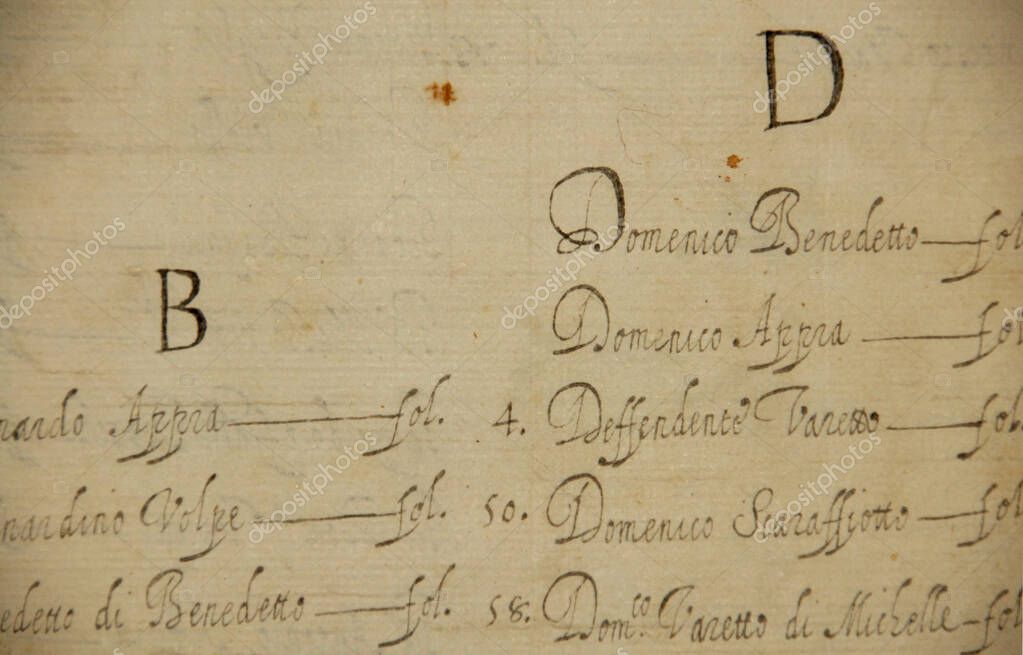 B
nardo Appra fol. 4.
nardino Volpe fol. 50.
edetto di Benedetto fol. 58.
D
Domenico Benedetto fol
Domenico Appra fol
Deffendente Varetto fol.
Domenico Scaraffiotto fol
Dom.co Varetto di Michelle fol
depositphotos